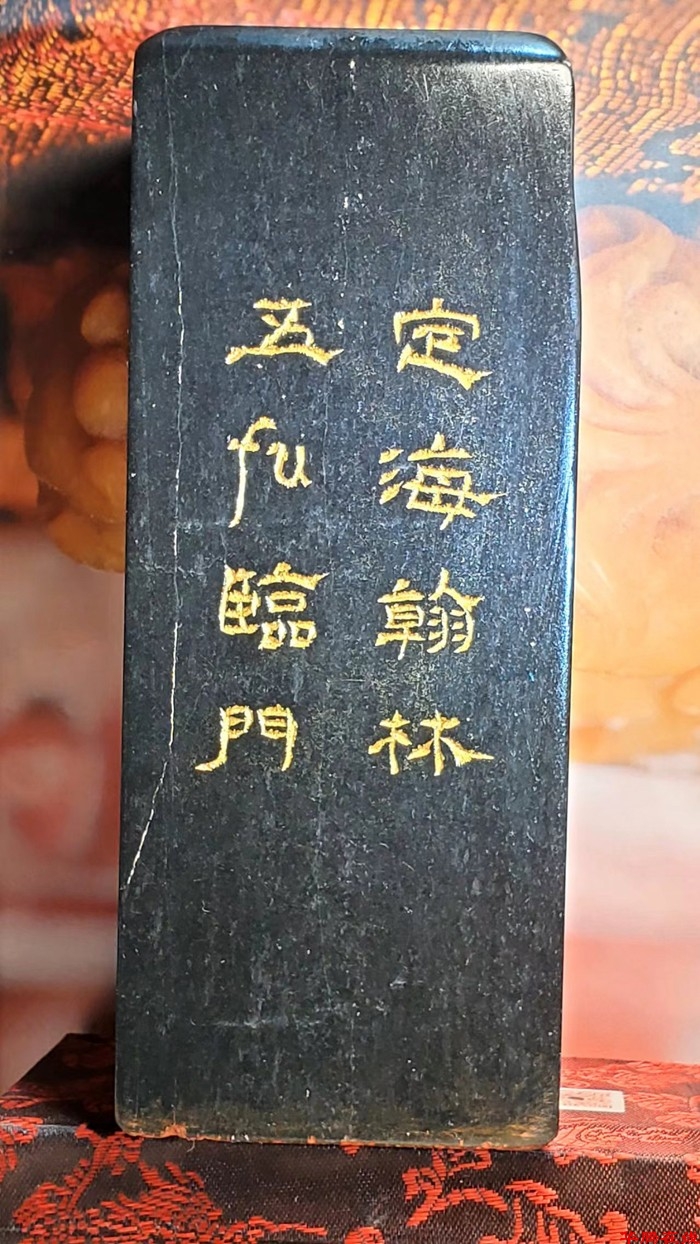 定海翰林
五fu臨門